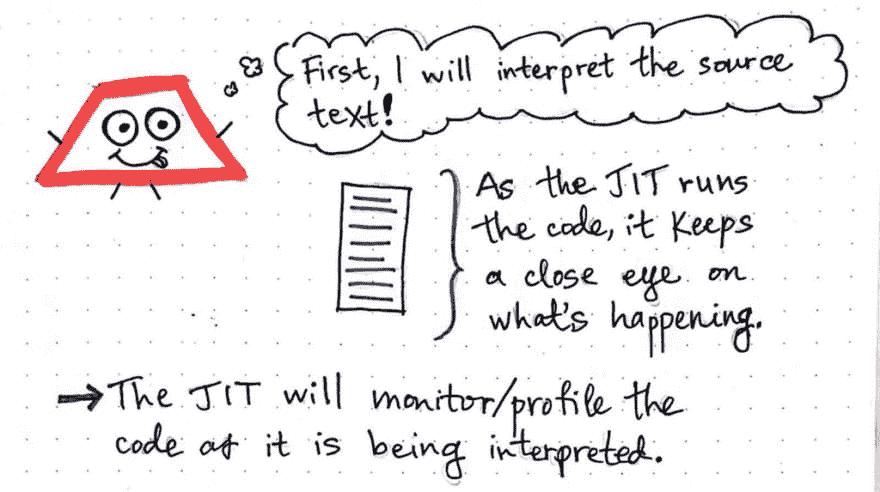 First, I will interpret the source
text!
As the JIT runs
the code, it keeps
a close eye on
what's happening.
→ The JIT will monitor/profile the
code as it is being interpreted.